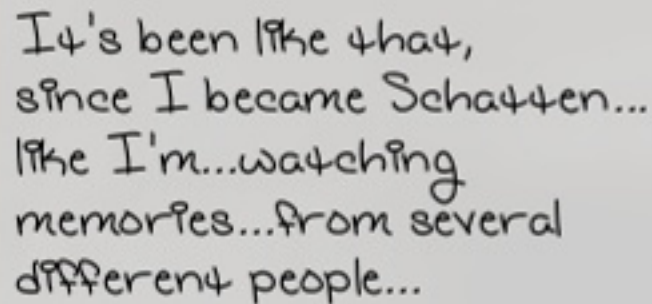 It's been like that,
since I became Schatten...
like I'm...watching
memories...from several
different people...